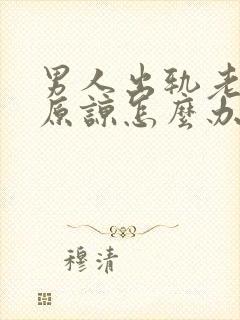 男人出轨老
原諒怎麼办
穆清